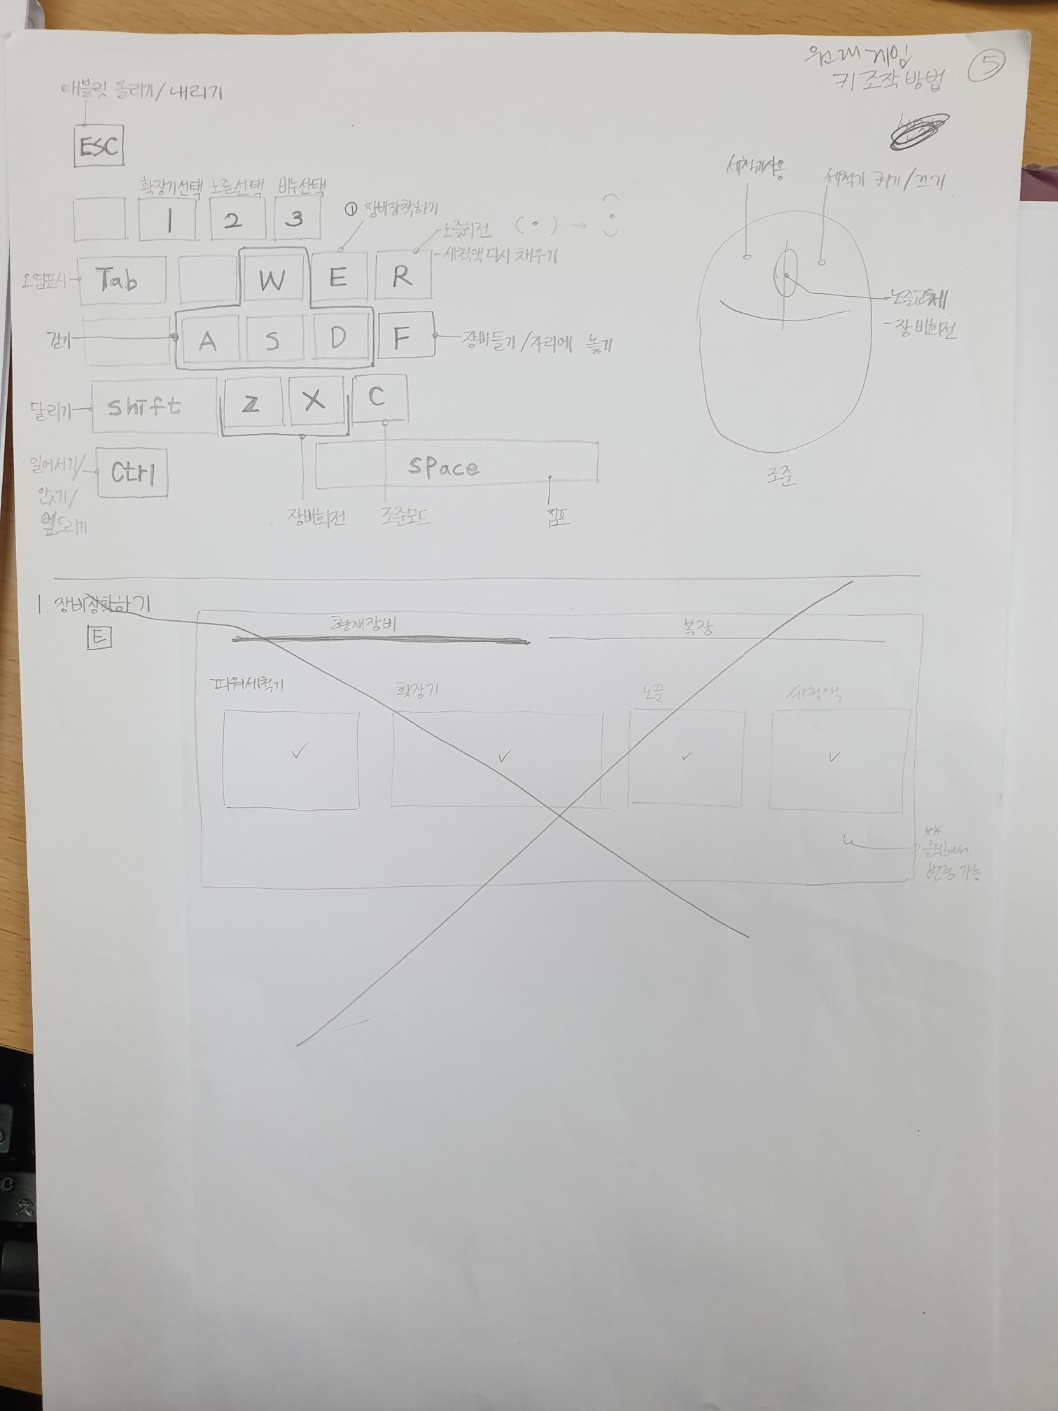 원래게임
키 조작방법
⑤
태블릿 올리기/내리기
ESC
확장기선택 노즐선택 비누선택
1 2 3
① 장비장착하기
-노즐회전 ( • ) →
-세척액 다시 채우기
오염표시
Tab W E R
걷기
A S D F
장비들기/자리에 놓기
달리기
Shift Z X C
일어서기/
앉기/
엎드리기
Ctrl
Space
장비회전
조준모드
점프
세척기사용
세척기 켜기/끄기
-노즐교체
-장비회전
조준
1. 장비장착하기
E
현재장비 복장
파워세척기 확장기 노즐 세척액
✓ ✓ ✓ ✓
**
변경 가능